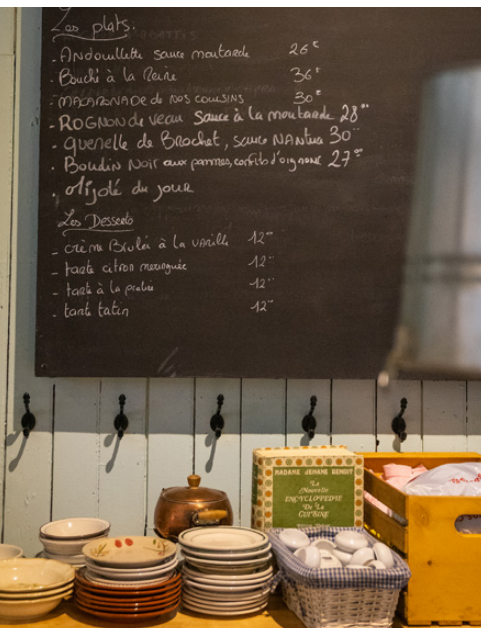 Les plats:
- Andouillette sauce moutarde 26€
- Bouché à la Reine 36€
- MACARONADE de nos cousins 30€
- ROGNON de veau sauce à la moutarde 28""
- quenelle de Brochet, sauce NANtua 30""
- Boudin Noir aux pommes, confits d'oignons 27""
. Mijoté du jour
Les Desserts
- crème Brulée à la vanille 12""
- tarte citron meringuée 12""
- tarte à la praline 12""
- tarte tatin 12""
MADAME JEHANE BENOIT
La
Nouvelle
ENCYCLOPEDIE
De La
CUISINE